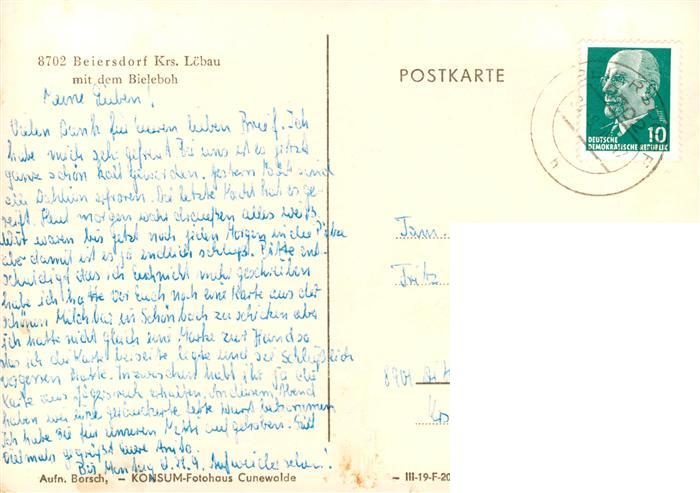 8702 Beiersdorf Krs. Löbau
mit dem Bieleboh
POSTKARTE
10
DEUTSCHE
DEMOKRATISCHE REPUBLIK
Meine Lieben!
Vielen Dank für Euren lieben Brief. Ich
habe mich sehr gefreut. Bei uns ist es jetzt
ganz schön kalt geworden. Gestern Nacht sind
die Dahlien erfroren. Die letzte Nacht hat es ge-
reift. Heut morgen war draußen alles weiß.
Wir waren bis jetzt noch jeden Morgen in die Pilze
aber damit ist es ja endlich schluß. Bitte ent-
schuldigt das ich Euch nicht mehr geschrieben
habe ich hatte vor Euch noch eine Karte aus der
schönen Milchbar in Schönbach zu schicken aber
ich hatte nicht gleich eine Marke zur Hand so
das ich die Karte beiseite legte und sie Schließlich
vergessen hatte. Inzwischen habt ihr ja die
Karte aus erhalten. An diesem Abend
haben wir eine geräucherte fette Wurst bekommen
Ich habe sie für unseren aufgehoben. Seid
vielmals gegrüßt Eure
Bis Montag d. 9. Aufwiedersehen!
Fam.
Fritz
8701
Aufn. Borsch, – KONSUM-Fotohaus Cunewalde
– III-19-F-20